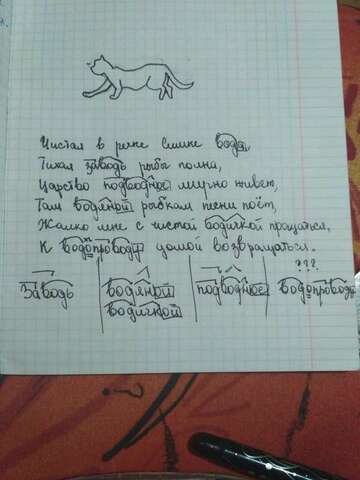 Чистая в речке синие вода,
Тихая заводь рыбы полна,
Царство подводное мирно живет,
Там водяной рыбкам песни поёт,
Жалко мне с чистой водичкой прощаться,
К водопроводу домой возвращаться.
???
Заводь водяной подводное водопроводу
водичкой